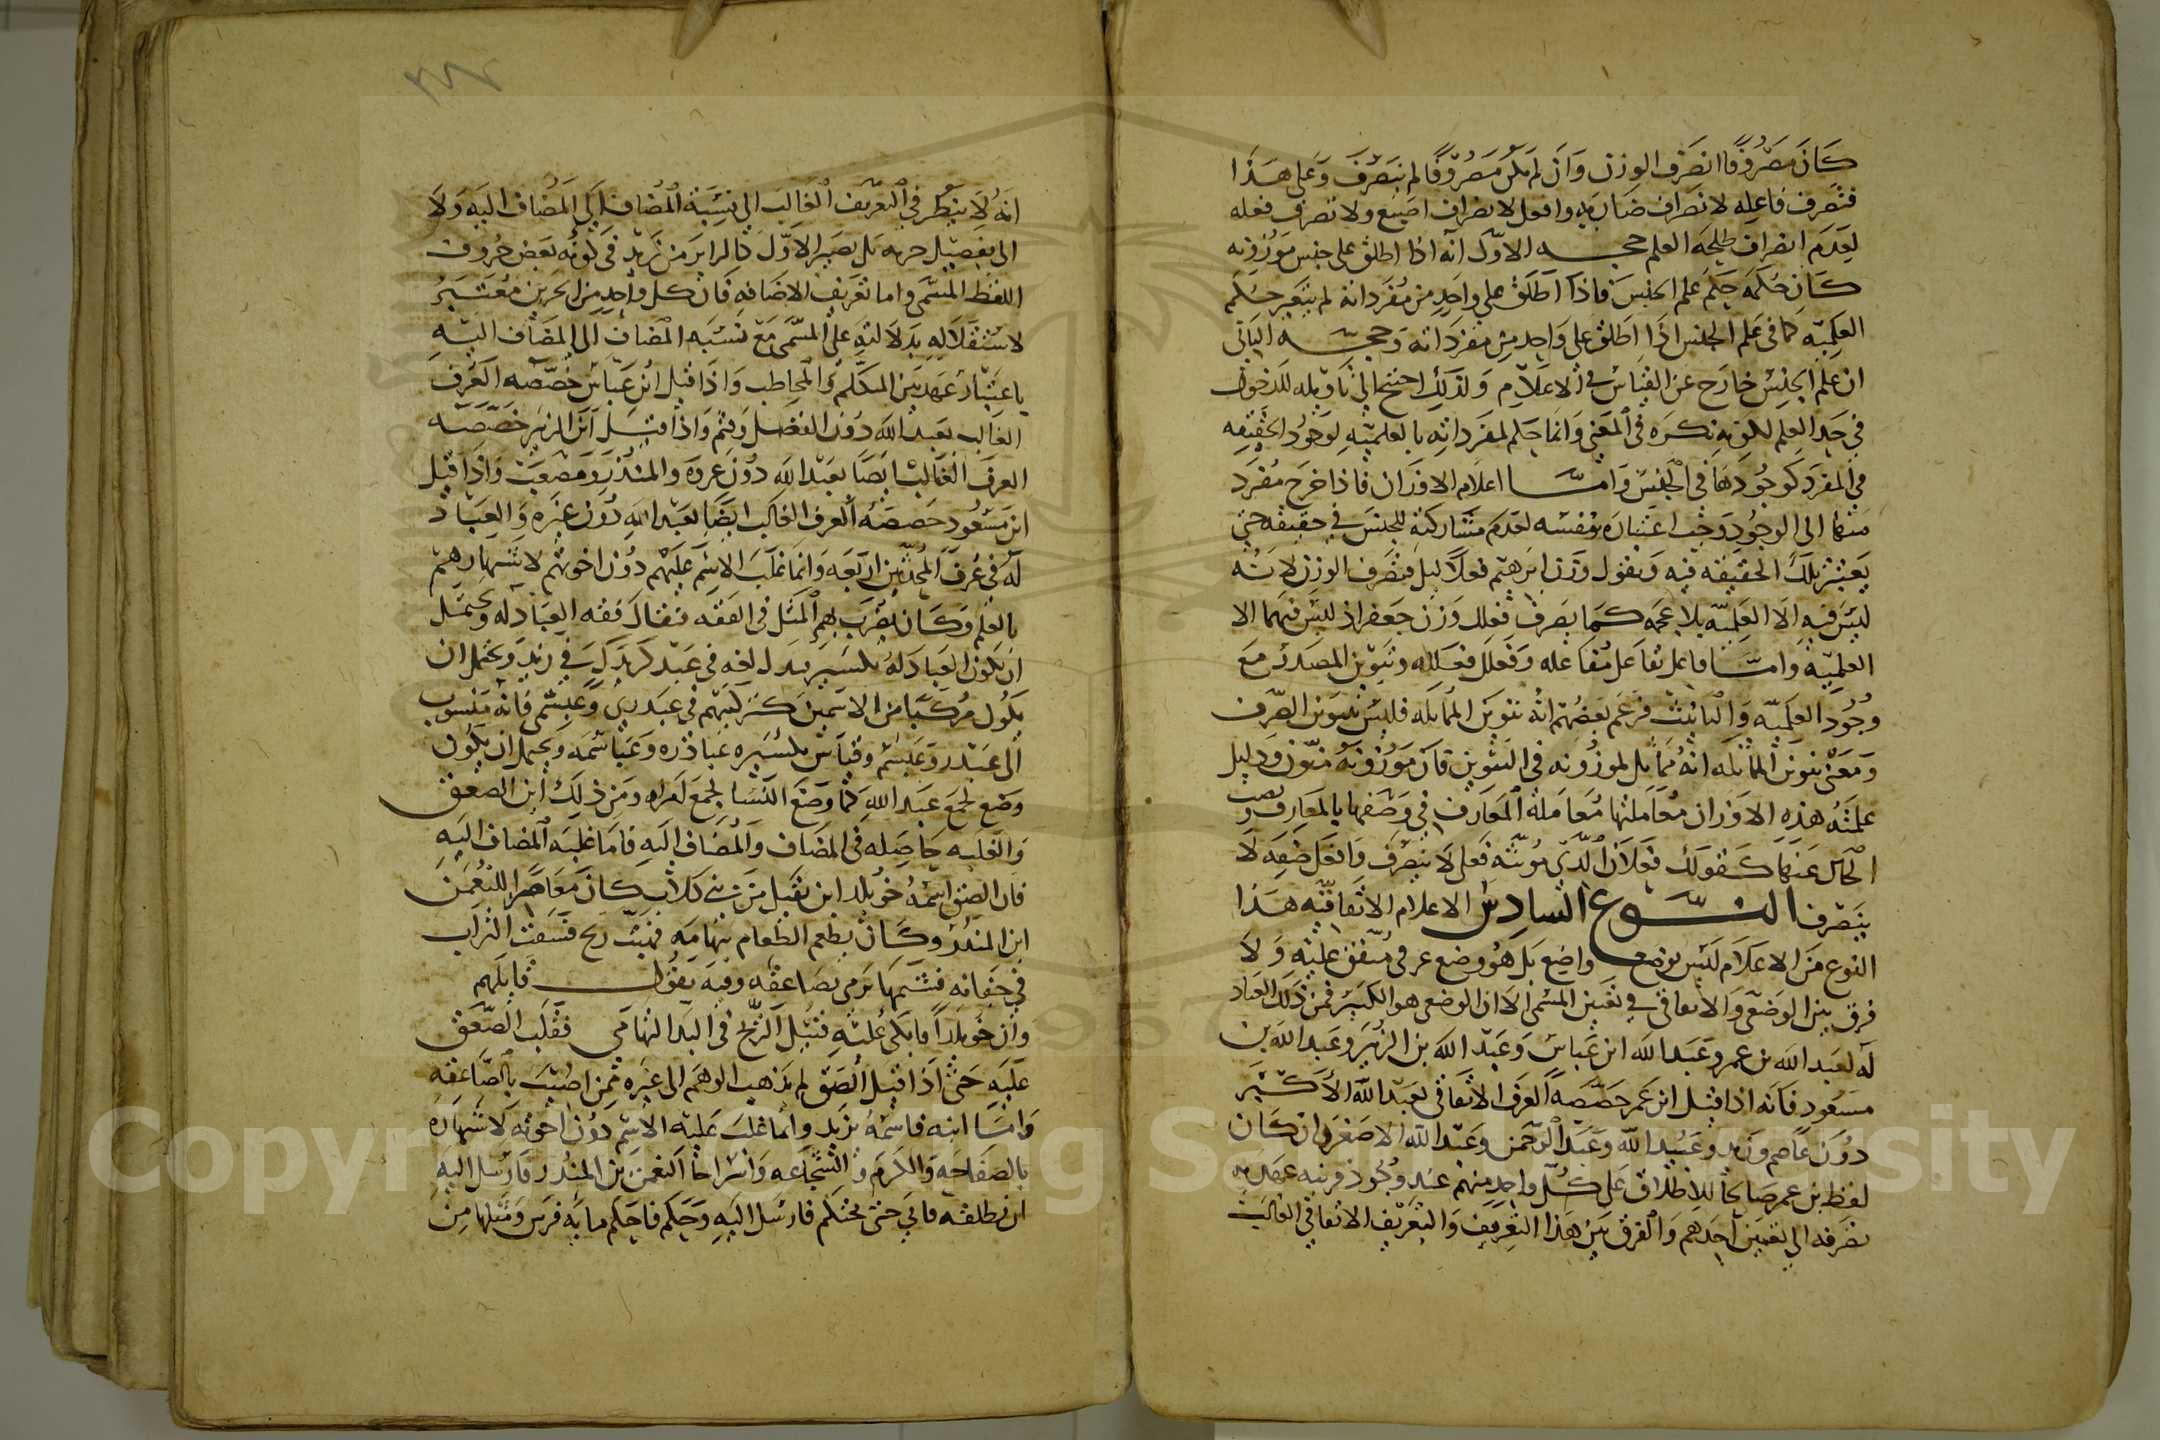 كان مصروفا انصرف الوزن وان لم يكن مصروفا لم ينصرف وعلى هذا
فتصرف فاعله لانصراف ضاربه وافعل لانصراف اصبع ولا تصرف فعله
لعدم انصراف طلحه العلم حجه الاول انه اذا اطلق على جنس موزونه
كان حكمه حكم علم الجنس فاذا اطلق على واحد من مفرداته لم يتغير حكم
العلميه كما في علم الجنس اذا اطلق على واحد من مفرداته وحجه الثاني
ان علم الجنس خارج عن القياس في الاعلام ولذلك احتج الى تاويله للدخول
في حد العلم لكونه نكره في المعنى وانما حكم لمفرداته بالعلميه لوجود الحقيقه
في المفرد كوجودها في الجنس واما اعلام الاوزان فاذا خرج مفرد
منها الى الوجود وجب اعتباره بنفسه لعدم مشاركته للجنس في حقيقه حتى
يعتبر تلك الحقيقه فيه ونقول وزن ابرهيم فعلاليل فتصرف الوزن لانه
ليس فيه الا العلميه بلا عجمه كما يصرف فعلل وزن جعفر اذ ليس فيهما الا
العلميه واما فاعل تفاعل مفاعله وفعلل فعلله وتنوين المصدر مع
وجود العلميه والتانيث فزعم بعضهم انه تنوين المقابله فليس تنوين الصرف
ومعنى تنوين المقابله انه مقابل لموزونه في التنوين فان موزونه منون ودليل
علميته هذه الاوزان معاملتها معاملة المعارف في وصفها بالمعارف ونصب
الحال عنها كقولك فعلان الذي مونثه فعلى لا ينصرف وافعل صفه لا
ينصرف النوع السادس الاعلام الاتفاقيه هذا
النوع من الاعلام ليس بوضع واضع بل هو وضع عرفي متفق عليه ولا
فرق بين الوضعي والاتفاقي في تعيين المسمى الا ان الوضعي هو الكثير فمن ذلك العباد
له لعبد الله بن عمر وعبد الله ابن عباس وعبد الله بن الزبير وعبد الله بن
مسعود فانه اذا قيل ابن عمر خصصه العرف الاتفاقي بعبد الله الاكبر
دون عاصم وزيد وعبيد الله وعبد الرحمن وعبد الله الاصغر وان كان
لفظ بن عمر صالحا للاطلاق على كل واحد منهم عند وجود قرينه عهديه
تصرفه الى تعيين احدهم والفرق بين هذا التعريف والتعريف الاتفاقي الغالب
انه لا ينظر في التعريف الغالب الى نسبة المضاف الى المضاف اليه ولا
الى تفصيل جزيه بل يصير الاول كالزاي من زيد في كونه بعض حروف
اللفظ المسمى واما تعريف الاضافه فان كل واحد من الجزين معتبر
لاستقلاله بدلالته على المسمى مع نسبه المضاف الى المضاف اليه
باعتبار عهد بين المتكلم والمخاطب واذا قيل ابن عباس خصصه العرف
الغالب بعبد الله دون الفضل وقثم واذا قيل ابن الزبير خصصه
العرف الغالب ايضا بعبد الله دون عروه والمنذر ومصعب واذا قيل
ابن مسعود خصصه العرف الغالب ايضا بعبد الله دون غيره والعباد
له في عرف المحدثين اربعه وانما غلب الاسم عليهم دون اخوتهم لاشتهارهم
بالعلم وكان يضرب بهم المثل في الفقه فيقال فقه العبادله ويحتمل
ان يكون العبادله تكسير عبدل لغه في عبد كزيدل في زيد ويحتمل ان
يكون مركبا من الاسمين كتركيبهم في عبدري وعبشمي فانه منسوب
الى عبدر وعبشم وقياس تكسيره عبادره وعباشمه ويحتمل ان يكون
وضع لجمع عبد الله كما وضع النسا لجمع امراه ومن ذلك ابن الصعق
والغلبه حاصله في المضاف والمضاف اليه فاما غلبه المضاف اليه
فان الصعق اسمه خويلد ابن نفيل من بني كلاب كان معاصرا للنعمن
ابن المنذر وكان يطعم الطعام بتهامه فهبت ريح فسفت التراب
في جفانه فشتمها فرمي بصاعقه وفيه يقول قايلهم
وان خويلدا فابكي عليه قتيل الريح في البلد التهامي فغلب الصعق
عليه حتى اذا قيل الصعق لم يذهب الوهم الى غيره ممن اصيب بالصاعقه
واما ابنه فاسمه يزيد وانما غلب عليه الاسم دون اخوته لاشتهاره
بالفصاحه والكرم والشجاعه واستراحا النعمن بن المنذر فارسل اليه
ان يطلقه فابى حتى يحتكم فارسل اليه وحكم فاحتكم مايه فرس ومثلها من